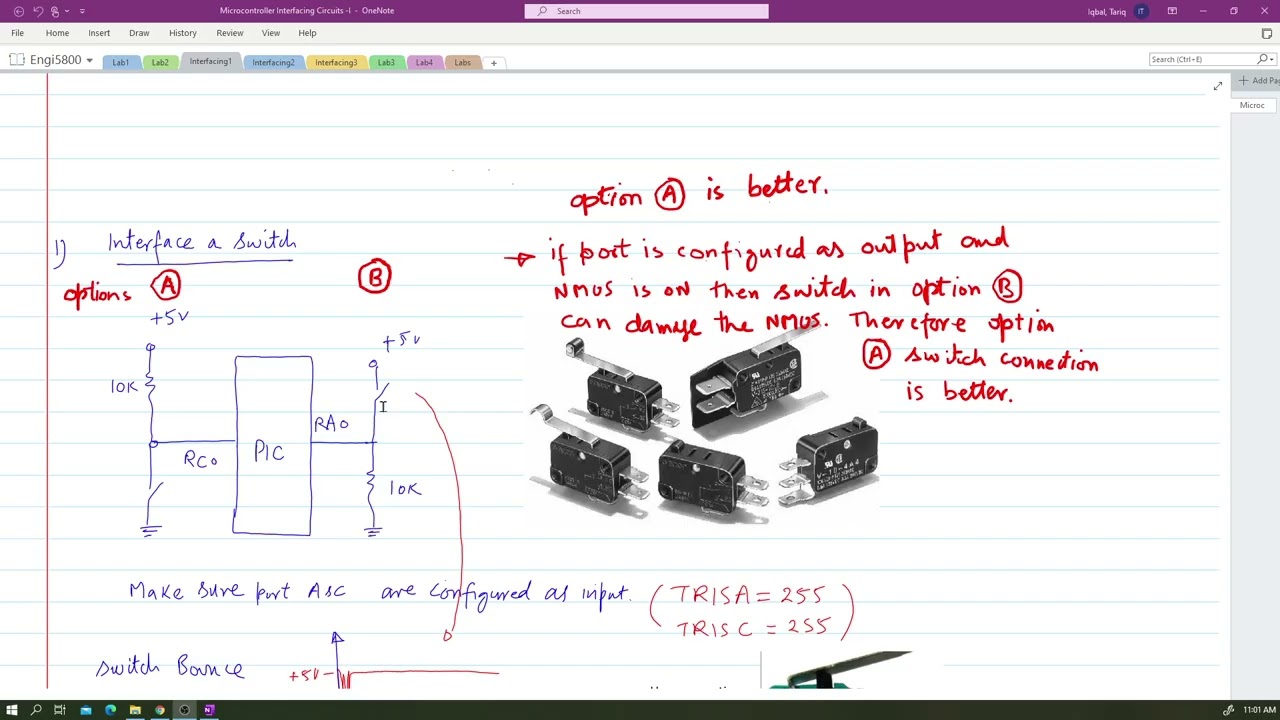 Microcontroller Interfacing Circuits -I - OneNote
Search
Iqbal, Tariq
IT
File Home Insert Draw History Review View Help
Engi5800
Lab1 Lab2 Interfacing1 Interfacing2 Interfacing3 Lab3 Lab4 Labs +
Search (Ctrl+E)
+ Add Pag
Microc
option A is better.
1) Interface a switch
→ if port is configured as output and
options A B
NMOS is ON then switch in option B
+5V
can damage the NMOS. Therefore option
+5V
A switch connection
is better.
10K
RA0
RC0
PIC
10K
Make sure port A&C are configured as input. (TRISA = 255
TRISC = 255)
switch Bounce
+5V
11:01 AM